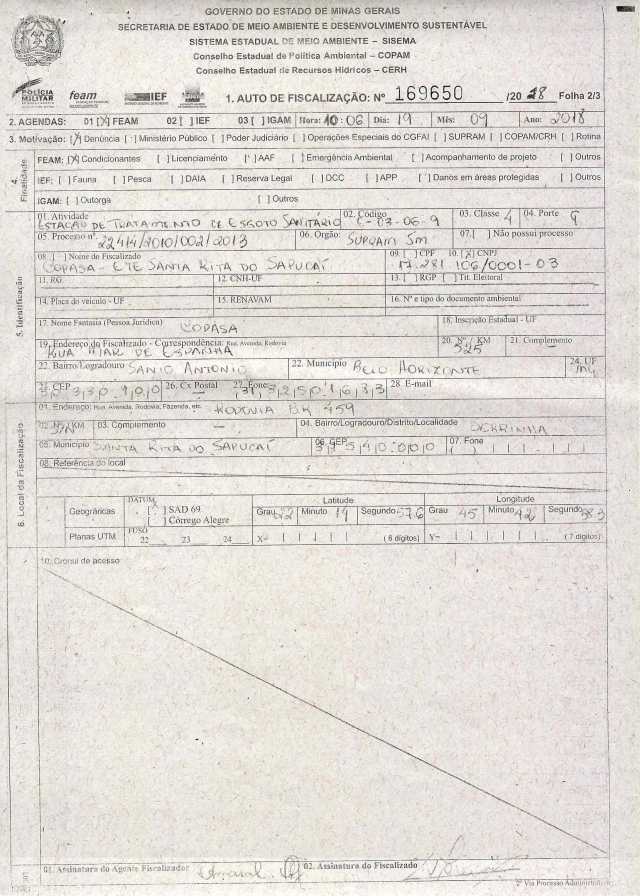 GOVERNO DO ESTADO DE MINAS GERAIS
SECRETARIA DE ESTADO DE MEIO AMBIENTE E DESENVOLVIMENTO SUSTENTÁVEL
SISTEMA ESTADUAL DE MEIO AMBIENTE – SISEMA
Conselho Estadual de Política Ambiental – COPAM
Conselho Estadual de Recursos Hídricos – CERH
POLÍCIA MILITAR feam IEF 1. AUTO DE FISCALIZAÇÃO: Nº 169650 /20 18 Folha 2/3
2. AGENDAS: 01 [X] FEAM 02 [ ] IEF 03 [ ] IGAM Hora: 10:06 Dia: 19 Mês: 09 Ano: 2018
3. Motivação: [X] Denúncia [ ] Ministério Público [ ] Poder Judiciário [ ] Operações Especiais do CGFAI [ ] SUPRAM [ ] COPAM/CRH [ ] Rotina
4. Finalidade
FEAM: [X] Condicionantes [ ] Licenciamento [ ] AAF [ ] Emergência Ambiental [ ] Acompanhamento de projeto [ ] Outros
IEF: [ ] Fauna [ ] Pesca [ ] DAIA [ ] Reserva Legal [ ] DCC [ ] APP [ ] Danos em áreas protegidas [ ] Outros
IGAM: [ ] Outorga [ ] Outros
5. Identificação
01. Atividade ESTAÇÃO DE TRATAMENTO DE ESGOTO SANITÁRIO 02. Código E-03-06-9 03. Classe 4 04. Porte G
05. Processo nº. 22414/2010/002/2013 06. Órgão: SUPRAM SM 07. [ ] Não possui processo
08. [ ] Nome do Fiscalizado COPASA - ETE SANTA RITA DO SAPUCAÍ 09. [ ] CPF 10. [X] CNPJ 17.281.106/0001-03
11. RG 12. CNH-UF 13. [ ] RGP [ ] Tit. Eleitoral
14. Placa do veículo - UF 15. RENAVAM 16. Nº e tipo do documento ambiental
17. Nome Fantasia (Pessoa Jurídica) COPASA 18. Inscrição Estadual - UF
19. Endereço do Fiscalizado - Correspondência: Rua, Avenida, Rodovia RUA MAR DE ESPANHA 20. Nº / KM 525 21. Complemento
22. Bairro/Logradouro SANTO ANTONIO 22. Município BELO HORIZONTE 24. UF MG
25. CEP 26. Cx Postal 27. Fone: 31 3 2 5 0 1 6 3 3 28. E-mail
6. Local da Fiscalização
01. Endereço: Rua, Avenida, Rodovia, Fazenda, etc. RODOVIA BR 459
02. Nº/KM S/N 03. Complemento 04. Bairro/Logradouro/Distrito/Localidade
05. Município SANTA RITA DO SAPUCAÍ 06. CEP 3 7 5 4 0 0 0 0 07. Fone
08. Referência do local
Geográficas DATUM [ ] SAD 69 [ ] Córrego Alegre Latitude Grau 22 Minuto Segundo 57.6 Longitude Grau 45 Minuto 42 Segundo 58.3
Planas UTM FUSO 22 23 24 X= (6 dígitos) Y= (7 dígitos)
10. Croqui de acesso
01. Assinatura do Agente Fiscalizador 02. Assinatura do Fiscalizado
1ª Via Processo Administrativo